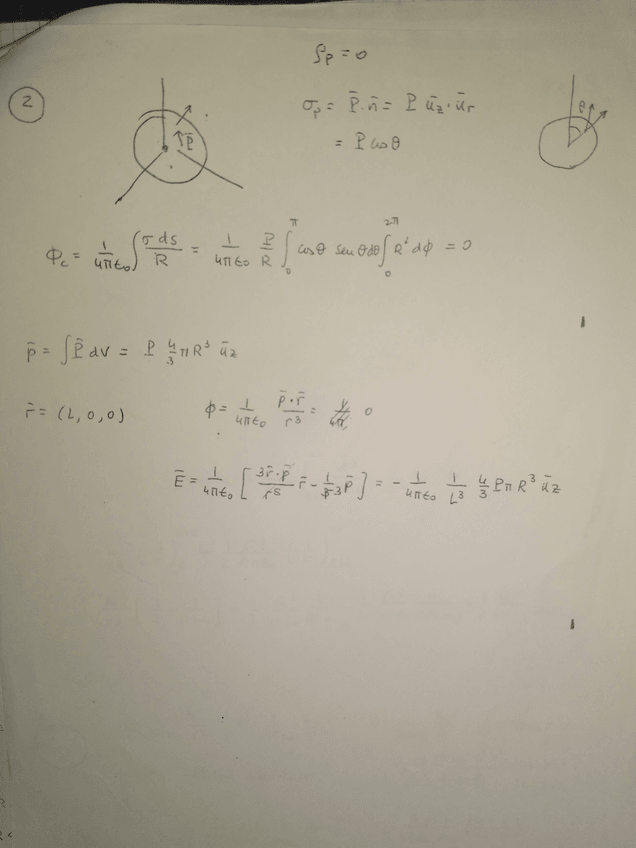 ρp = 0
2
σp = P̄·n̄ = P ūz·ūr
= P cos θ
P̄
θ
ϕc = 1/4πε0 ∫ σ ds/R = 1/4πε0 P/R ∫0^π cos θ sen θ dθ ∫0^2π R² dϕ = 0
p̄ = ∫ P̄ dV = P 4/3 π R³ ūz
r̄ = (L, 0, 0)
ϕ = 1/4πε0 p̄·r̄/r³ = 0
Ē = 1/4πε0 [ 3r̄·p̄/r⁵ r̄ - 1/r³ p̄ ] = - 1/4πε0 1/L³ 4/3 PπR³ ūz